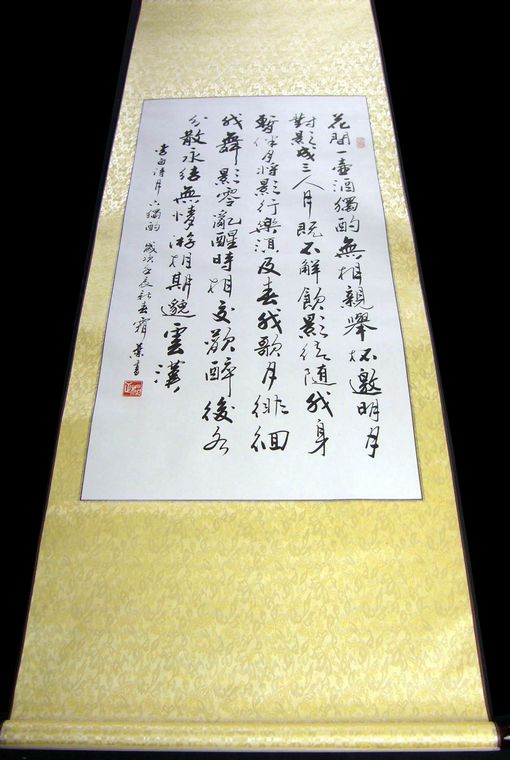 花間一壺酒獨酌無相親舉杯邀明月
對影成三人月既不解飲影徒隨我身
暫伴月將影行樂須及春我歌月徘徊
我舞影零亂醒時相交歡醉後各
分散永結無情游相期邈雲漢
李白詩月下獨酌 歲次 辰 春 書